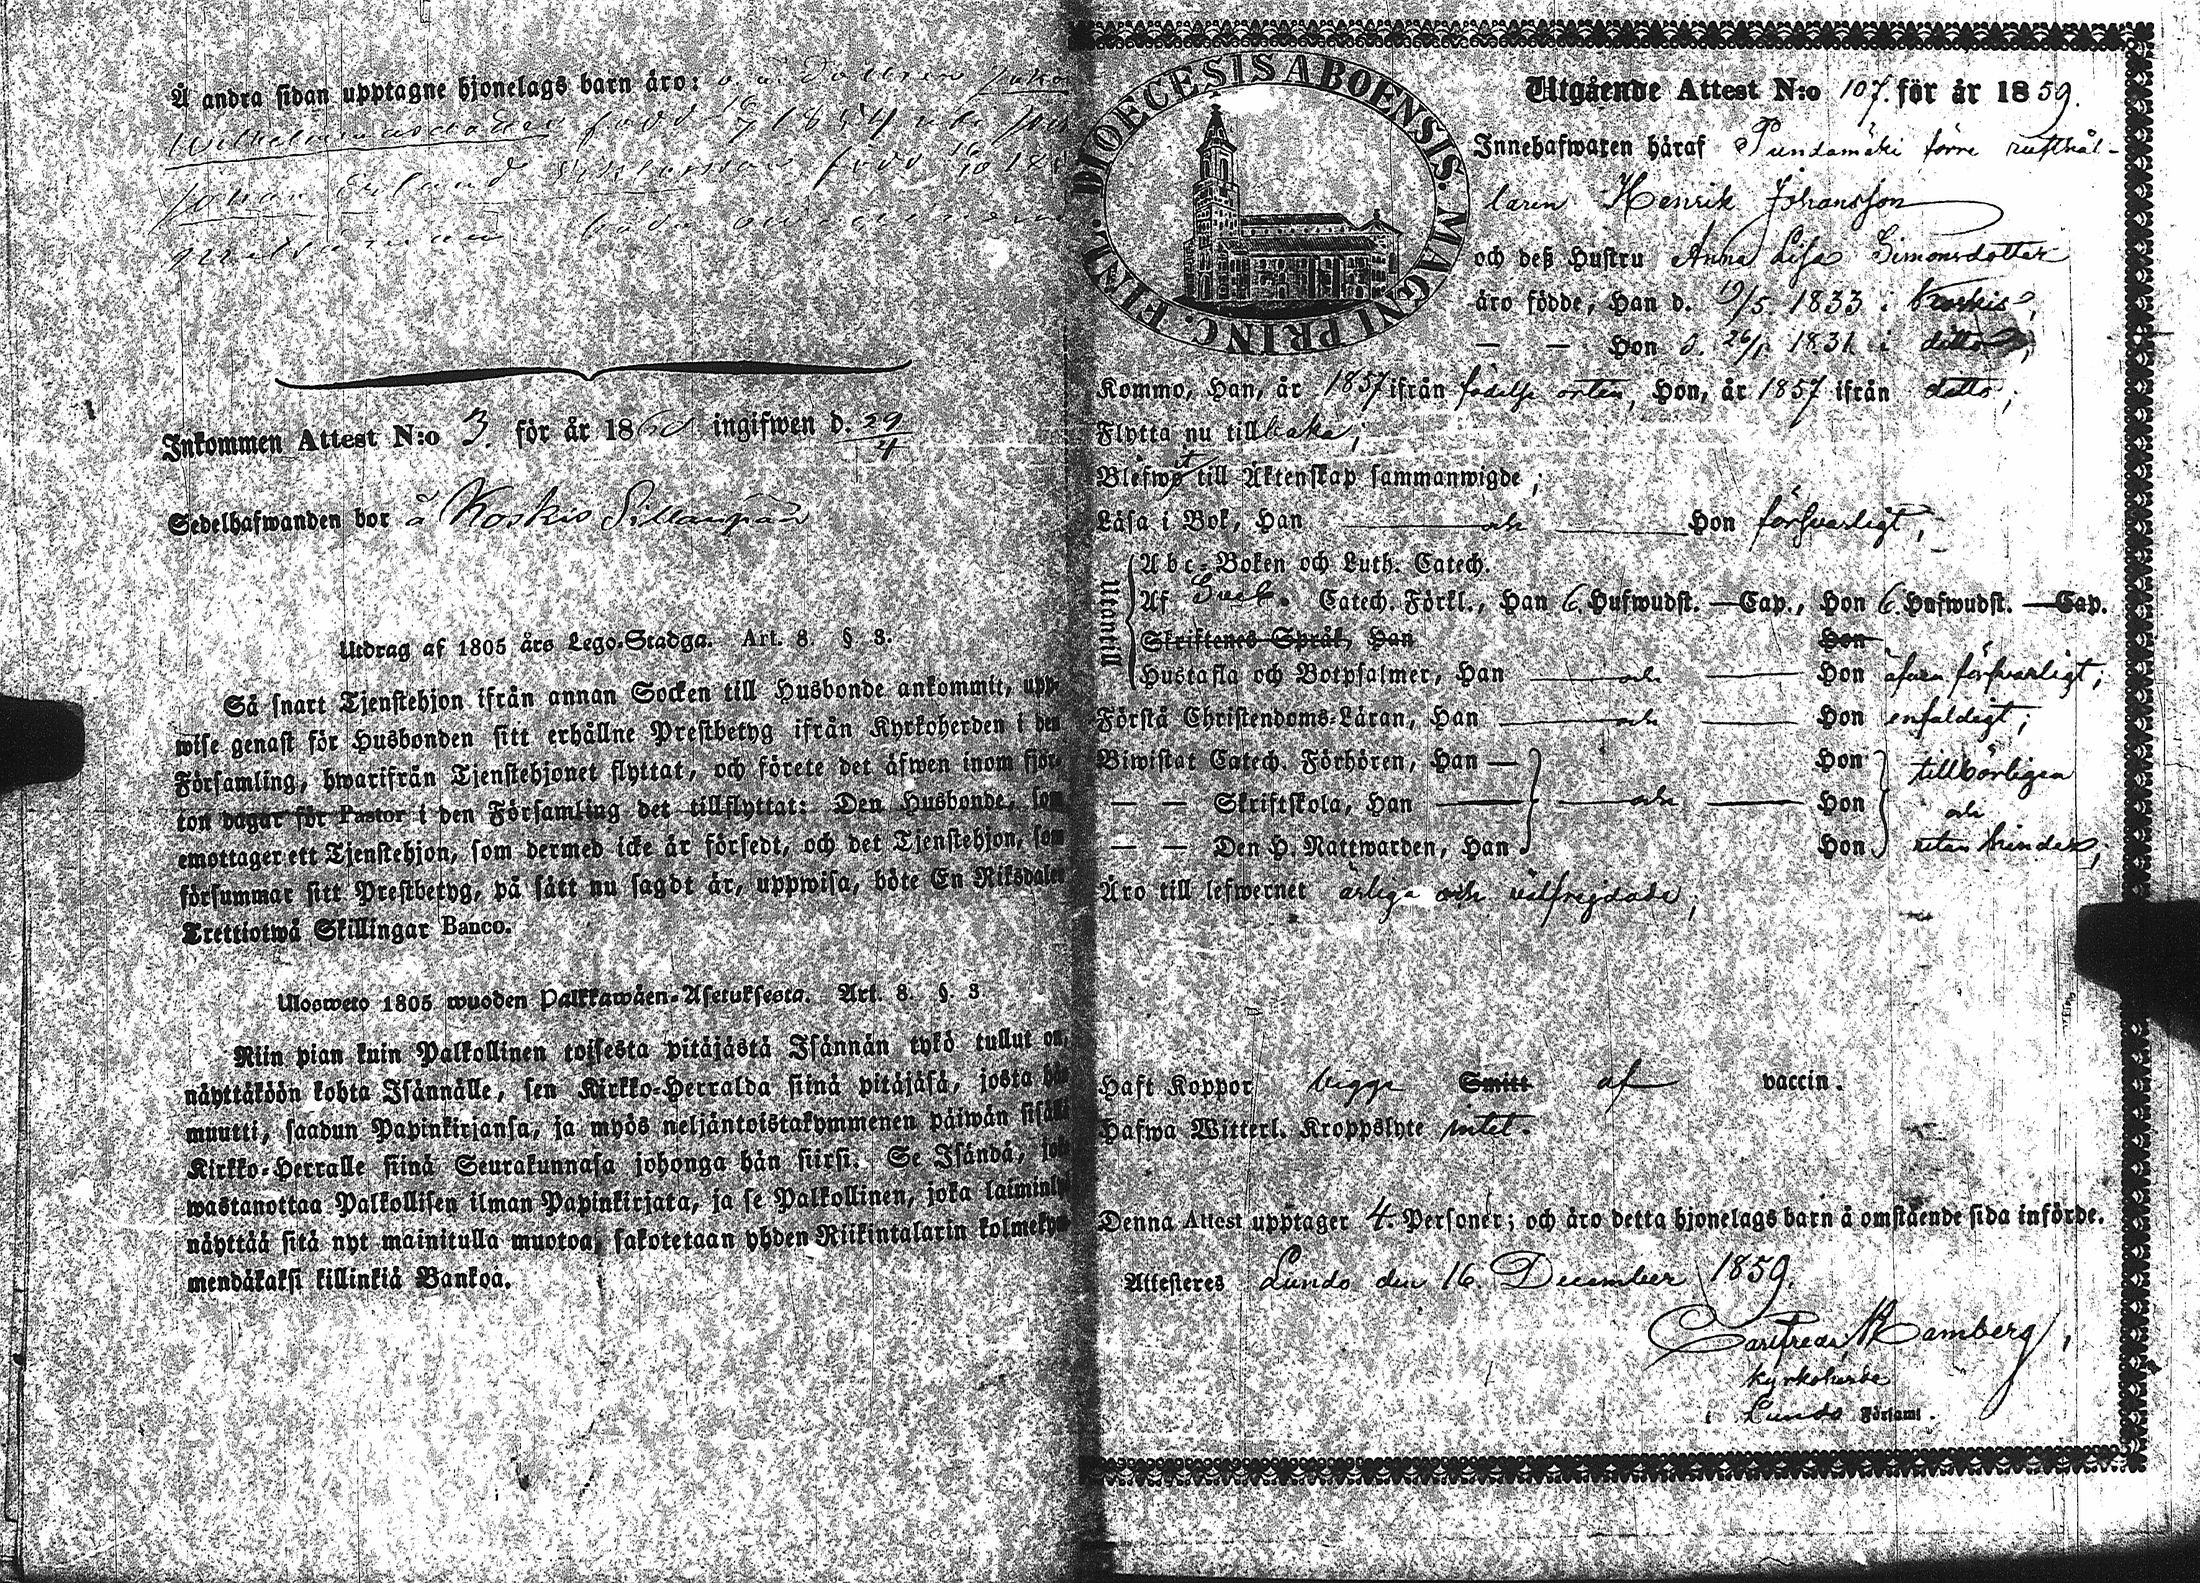 Å andra sidan upptagne hjonelags barn äro:
Wilhelminasdotter född 1854
Johan Erland född
båda
Inkommen Attest N:o 3. för år 1860 ingifwen d. 29/4
Sedelhafwanden bor å Koskis Sillanpää
Utdrag af 1805 års Lego-Stadga. Art. 8. § 3.
Så snart Tjenstehjon ifrån annan Socken till Husbonde ankommit, upp-
wise genast för Husbonden sitt erhållne Prestbetyg ifrån Kyrkoherden i den
Församling, hwarifrån Tjenstehjonet flyttat, och förete det äfwen inom fjor-
ton dagar för Pastor i den Församling det tillflyttat: Den Husbonde, som
emottager ett Tjenstehjon, som dermed icke är försedt, och det Tjenstehjon, som
försummar sitt Prestbetyg, på sätt nu sagdt är, uppwisa, böte En Riksdaler
Trettiotwå Skillingar Banco.
Ulosweto 1805 wuoden Palkkawäen-Asetuksesta. Art. 8. §. 3
Niin pian kuin Palkollinen toisesta pitäjästä Isännän tykö tullut on,
näyttäköön kohta Isännälle, sen Kirkko-Herralda siinä pitäjäsä, josta hän
muutti, saadun Papinkirjansa, ja myös neljäntoistakymmenen päiwän sisällä
Kirkko-Herralle siinä Seurakunnasa johonga hän siirsi. Se Isändä, joka
wastanottaa Palkollisen ilman Papinkirjata, ja se Palkollinen, joka laiminlyö
näyttää sitä nyt mainitulla muotoa, sakotetaan yhden Riikintalarin kolmekym-
mendäkaksi killinkiä Bankoa.
DIOECESIS ABOENSIS. MAGNI PRINC. FINL.
Utgående Attest N:o 107. för år 1859.
Innehafwaren häraf Pundamäki förre rusthål-
laren Henrik Johansson
och deß Hustru Anna Lisa Simonsdotter
äro födde, Han d. 19/5. 1833 i Koskis,
— — Hon d. 26/1. 1831 i ditto,
Kommo, Han, år 1857 ifrån födelse orten, Hon, år 1857 ifrån ditto;
Flytta nu tillbaka;
Blefwo till Äktenskap sammanwigde;
Läsa i Bok, Han — och — Hon försvarligt,
Utantill
Abc-Boken och Luth. Catech.
Af Sveb. Catech. Förkl., Han 6. Hufwudst. — Cap., Hon 6. Hufwudst. — Cap.
Skriftenes Språk, Han Hon
Hustafla och Botpsalmer, Han — och — Hon äfven försvarligt;
Förstå Christendoms-Läran, Han — och — Hon enfaldigt;
Biwistat Catech. Förhören, Han — Hon tillbörligen
— — Skriftskola, Han — och — Hon och
— — Den H. Nattwarden, Han Hon utan hinder;
Äro till lefwernet ärliga och välfrejdade;
Haft Koppor begge Smitt af vaccin.
Hafwa Witterl. Kroppslyte intet.
Denna Attest upptager 4. Personer; och äro detta hjonelags barn å omstående sida införde.
Attesteras Lundo den 16 December 1859.
Carl Fredr. Hamberg,
kyrkoherde
i Lundo Församl.